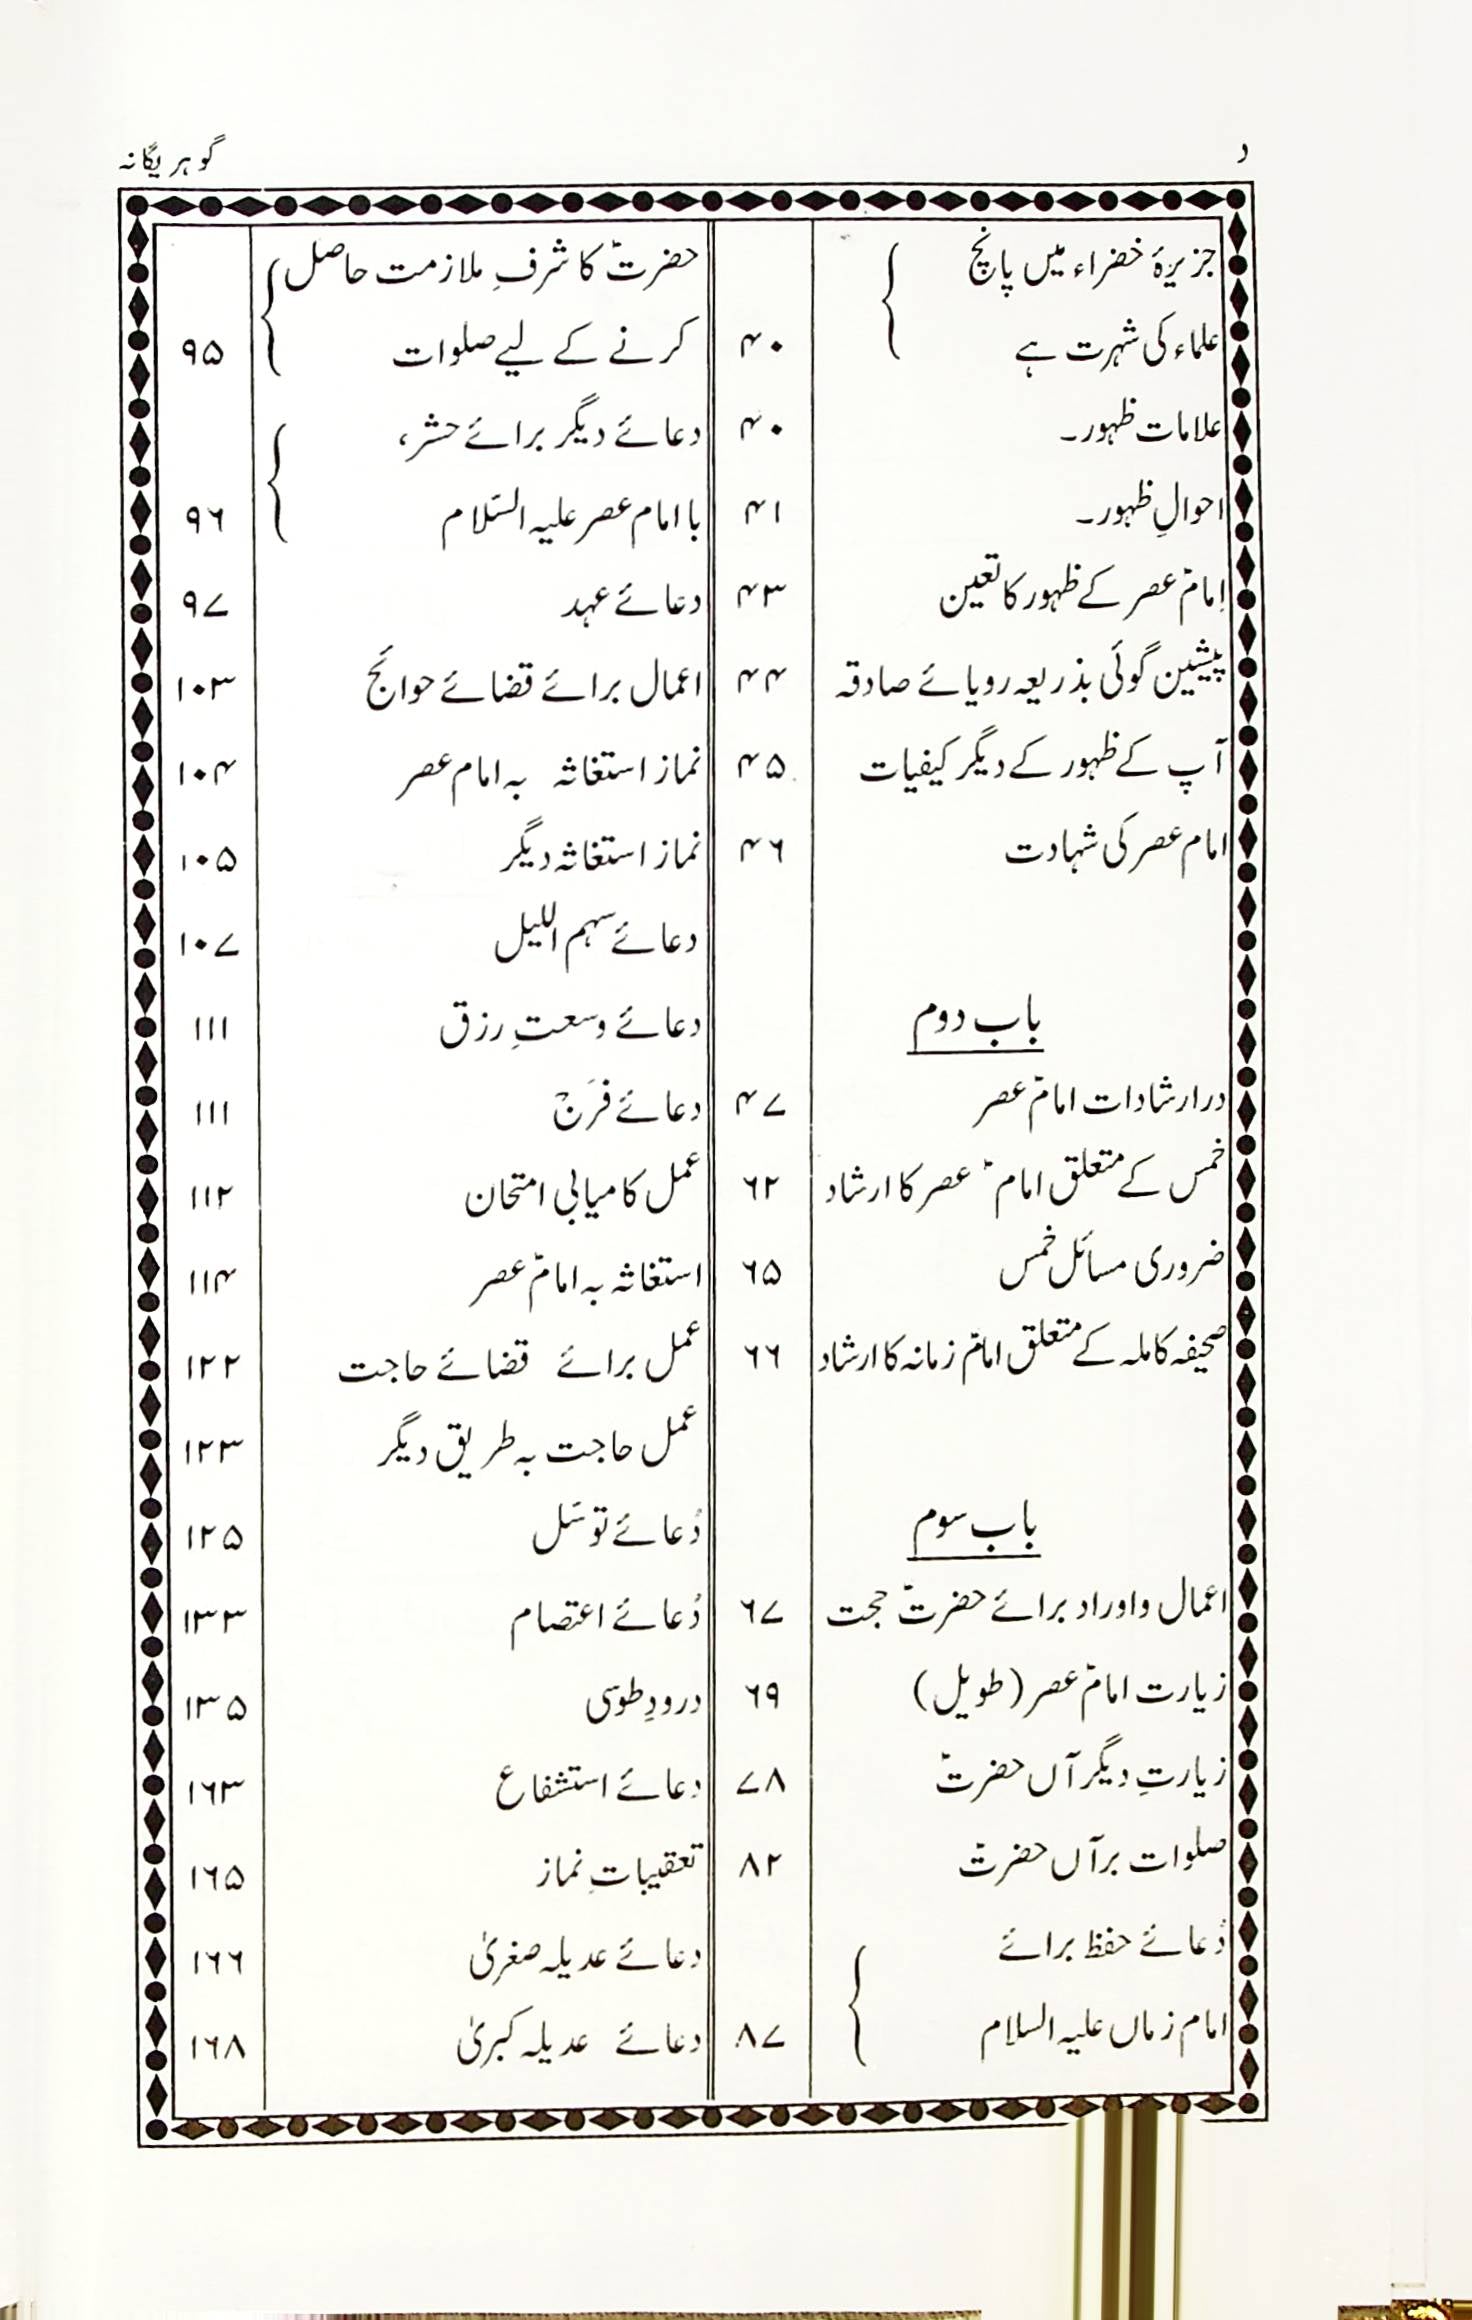 د
گوہر یگانہ
جزیرۂ خضراء میں پانچ
علماء کی شہرت ہے ۴۰
علامات ظہور۔ ۴۰
احوالِ ظہور۔ ۴۱
اِمامؑ عصر کے ظہور کا تعین ۴۳
پیشین گوئی بذریعہ رویائے صادقہ ۴۴
آپ کے ظہور کے دیگر کیفیات ۴۵
امام عصر کی شہادت ۴۶
باب دوم
در ارشادات امامؑ عصر ۴۷
خمس کے متعلق امامؑ عصر کا ارشاد ۶۲
ضروری مسائل خمس ۶۵
صحیفہ کاملہ کے متعلق امامؑ زمانہ کا ارشاد ۶۶
باب سوم
اعمال و اوراد برائے حضرتؑ حجت ۶۷
زیارت امامؑ عصر (طویل) ۶۹
زیارتِ دیگر آں حضرتؑ ۷۸
صلوات برآں حضرتؑ ۸۲
دُعائے حفظ برائے
امام زماں علیہ السلام ۸۷
حضرتؑ کا شرفِ ملازمت حاصل
کرنے کے لیے صلوات ۹۵
دعائے دیگر برائے حشر،
با امام عصر علیہ السّلام ۹۶
دعائے عہد ۹۷
اعمال برائے قضائے حوائج ۱۰۳
نماز استغاثہ بہ امام عصر ۱۰۴
نماز استغاثہ دیگر ۱۰۵
دعائے سہم اللیل ۱۰۷
دعائے وسعتِ رزق ۱۱۱
دعائے فرَج ۱۱۱
عمل کامیابی امتحان ۱۱۲
استغاثہ بہ امامؑ عصر ۱۱۴
عمل برائے قضائے حاجت ۱۲۲
عمل حاجت بہ طریق دیگر ۱۲۳
دُعائے توسّل ۱۲۵
دُعائے اعتصام ۱۳۳
درودِ طوسی ۱۳۵
دعائے استشفاع ۱۶۳
تعقیباتِ نماز ۱۶۵
دعائے عدیلہ صغریٰ ۱۶۶
دعائے عدیلہ کبریٰ ۱۶۸